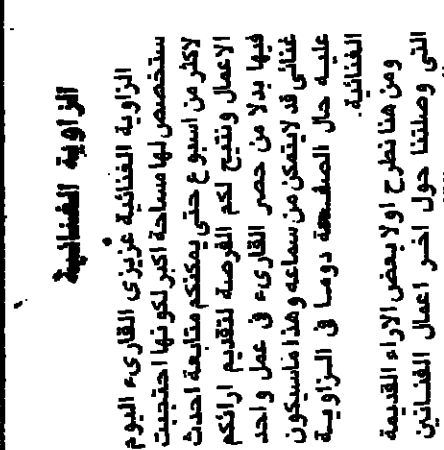 الزاوية الغنائية
الزاوية الغنائية عزيزى القارىء اليوم
ستخصص لها مساحة اكبر لكونها احتجبت
لاكثر من اسبوع حتى يمكنكم متابعة احدث
الاعمال ونتيح لكم الفرصة لتقديم ارائكم
فيها بدلا من حصر القارىء فى عمل واحد
غنائى قد لايتمكن من سماعه وهذا ماسيكون
عليه حال الصفحة دوما فى الزاوية
الغنائية.
ومن هنا نطرح اولا بعض الاراء القديمة
التى وصلتنا حول اخر اعمال الفنانين